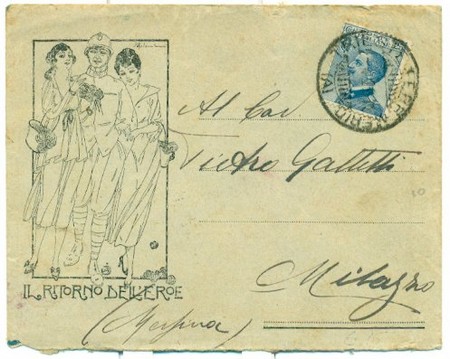 Al Cav.
Pietro Galletti
Milazzo
(Messina)
IL RITORNO DELL'EROE
10